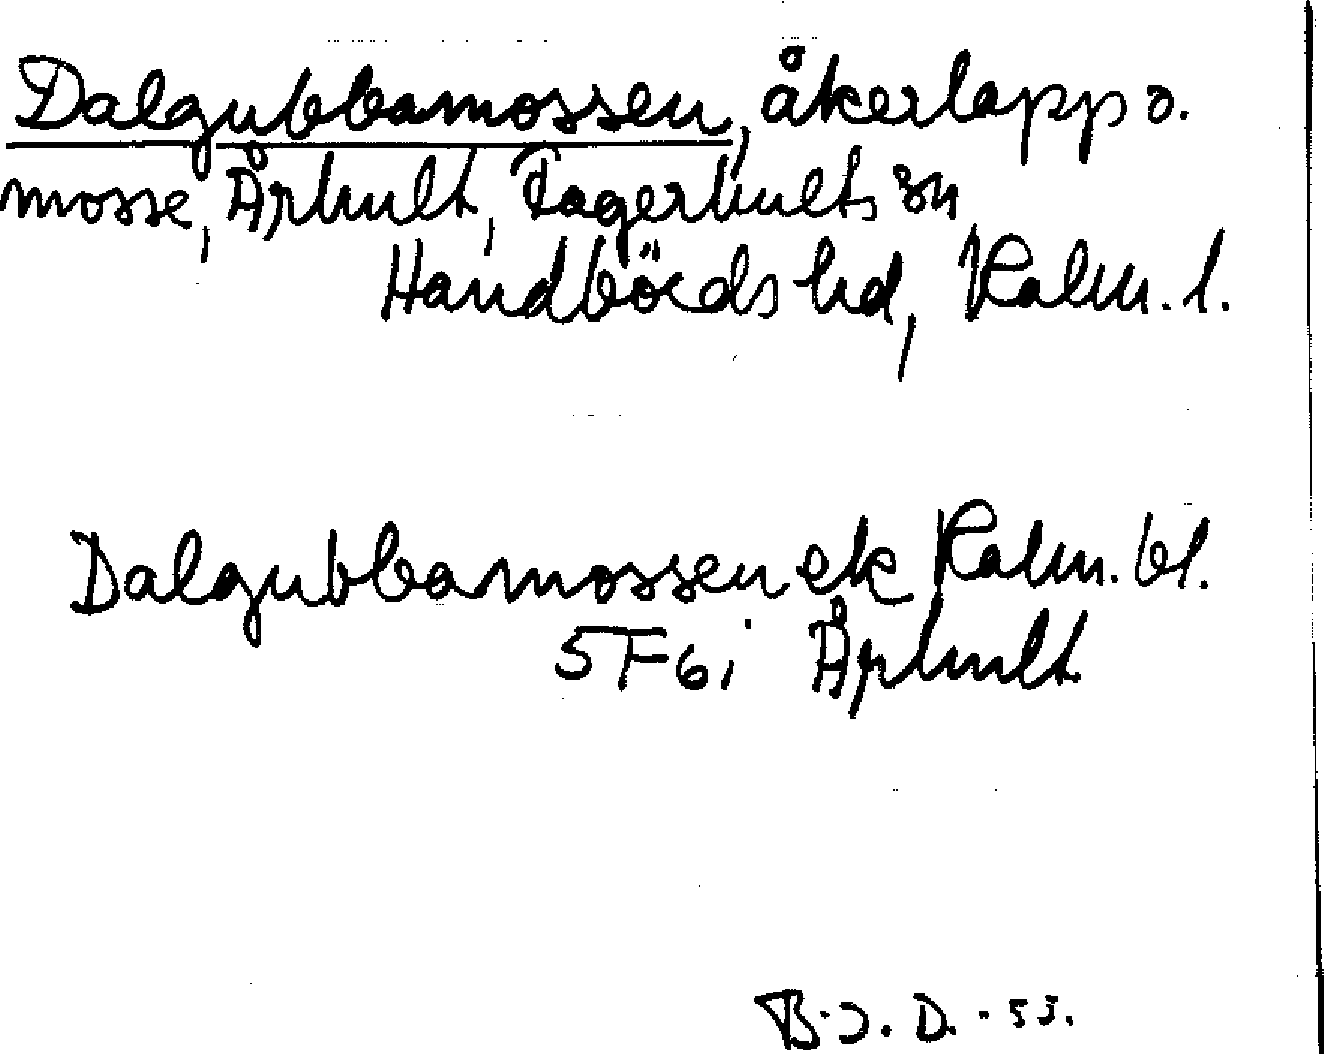 Dalgubbamossen, åkerlapp o.
mosse, Århult, Fagerhults sn
Handbörds hd, Kalm. l.
Dalgubbamossen ek Kalm. bl.
5F6i Århult
B.J.D.-53.